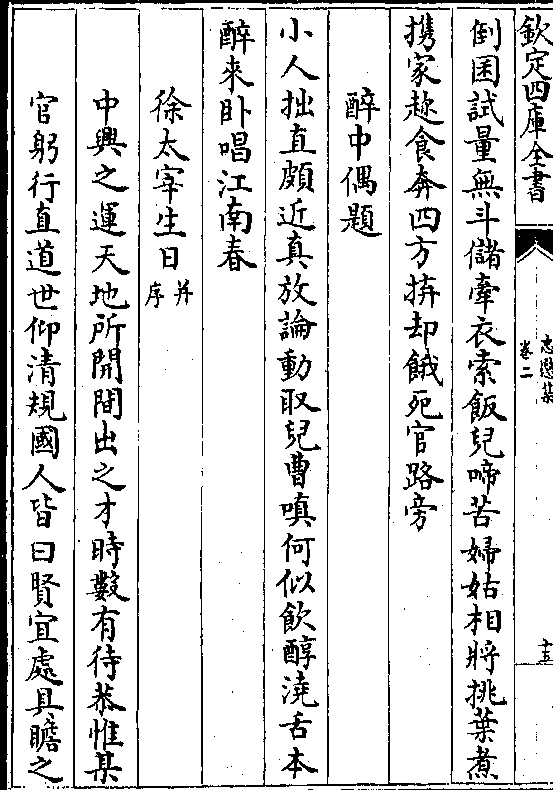 欽定四庫全書
卷二
十五
倒囷試量無斗儲牽衣索飯兒啼苦婦姑相將挑葉煮
携家趂食奔四方拚却餓死官路旁
醉中偶題
小人拙直頗近真放論動取兒曹嗔何似飲醇澆舌本
醉來卧唱江南春
徐太宰生日并序
中興之運天地所開間出之才時數有待恭惟某
官躬行直道世仰清規國人皆曰賢宜處具瞻之